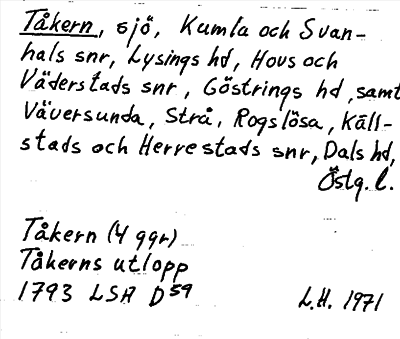 Tåkern, sjö, Kumla och Svan-
hals snr, Lysings hd, Hovs och
Väderstads snr, Göstrings hd, samt
Väversunda, Strå, Rogslösa, Käll-
stads och Herrestads snr, Dals hd,
Östg. l.
Tåkern (4 ggr)
Tåkerns utlopp
1793 LSA D59
L.H. 1971